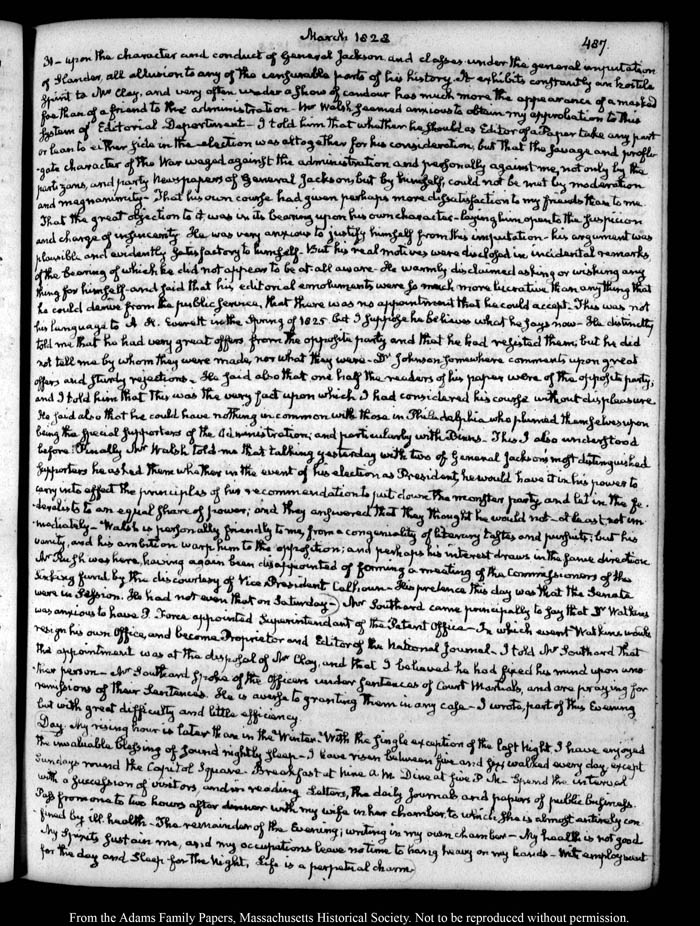 March 1828
487.
It - upon the character and conduct of General Jackson and classes under the general imputation
of slander, all allusion to any of the censurable parts of his history. It exhibits constantly an hostile
spirit to Mr Clay, and very often under a show of candour has much more the appearance of a masked
foe than of a friend to the administration - Mr Walsh seemed anxious to obtain my approbation to this
system of Editorial Deportment - I told him that whether he should as Editor of a Paper take any part
or lean to either side in the election was altogether for his consideration; but that the savage and profli-
-gate character of the War waged against the administration and personally against me, not only by the
partizans, and party Newspapers of General Jackson, but by himself, could not be met by moderation
and magnanimity - That his own course had given perhaps more dissatisfaction to my friends than to me.
That the great objection to it was in its bearing upon his own character - laying him open to the suspicion
and charge of insincerity. He was very anxious to justify himself from this imputation - his argument was
plausible and evidently satisfactory to himself. But his real motives were disclosed in incidental remarks,
of the bearing of which he did not appear to be at all aware - He warmly disclaimed asking or wishing any
thing for himself - and said that his editorial emoluments were so much more lucrative than any thing that
he could derive from the public service, that there was no appointment that he could accept. This was not
his language to A. H. Everett in the Spring of 1825 but I suppose he believes what he says now - He distinctly
told me that he had very great offers, from the opposite party and that he had rejected them; but he did
not tell me by whom they were made, nor what they were - Dr Johnson somewhere comments upon great
offers and sturdy rejections. He said also that one half the readers of his paper were of the opposite party;
and I told him that this was the very fact upon which I had considered his course without displeasure.
He said also that he could have nothing in common with those in Philadelphia who plumed themselves upon
being the special supporters of the Administration; and particularly with Binns - This I also understood
before. Finally Mr Walsh told me that talking yesterday with two of General Jackson's most distinguished
supporters he asked them whether in the event of his election as President, he would have it in his power to
carry into effect the principles of his recommendation to put down the monster party and let in the Fe-
-deralists to an equal share of power; and they answered that they thought he would not - at least, not im-
-mediately - Walsh is personally friendly to me, from a congeniality of literary tastes and pursuits; but his
vanity, and his ambition warp him to the opposition; and perhaps his interest draws in the same direction.
Mr Rush was here, having again been disappointed of forming a meeting of the Commissioners of the
sinking fund by the discourtesy of Vice President Calhoun - His pretence this day was that the Senate
were in Session. He had not even that on Saturday - Mr Southard came principally to say that Dr Watkins
was anxious to have P. Force appointed Superintendant of the Patent Office - In which event Watkins would
resign his own Office, and become Proprietor and Editor of the National Journal - I told Mr Southard that
the appointment was at the disposal of Mr Clay, and that I believed he had fixed his mind upon ano-
-ther person - Mr Southard spoke of the Officers under sentences of Court Martials, and are praying for
remissions of their sentences. He is averse to granting them in any case - I wrote, part of this Evening
but with great difficulty and little efficiency.
Day. My rising hour is later than in the Winter. With the single exception of the last Night I have enjoyed
the invaluable blessing of sound nightly sleep - I have risen between five and six walked every day, except
Sundays round the Capitol Square - Breakfast at Nine A.M. Dine at five P.M. - Spend the interval
with a succession of visitors, and in reading Letters, the daily Journals and papers of public business.
Pass from one to two hours after dinner with my wife in her chamber, to which she is almost entirely con
fined by ill health - The remainder of the Evening; writing in my own chamber - My health is not good
My Spirits sustain me, and my occupations leave no time to hang heavy on my hands - With employment
for the day and sleep for the Night, Life is a perpetual charm.
From the Adams Family Papers, Massachusetts Historical Society. Not to be reproduced without permission.